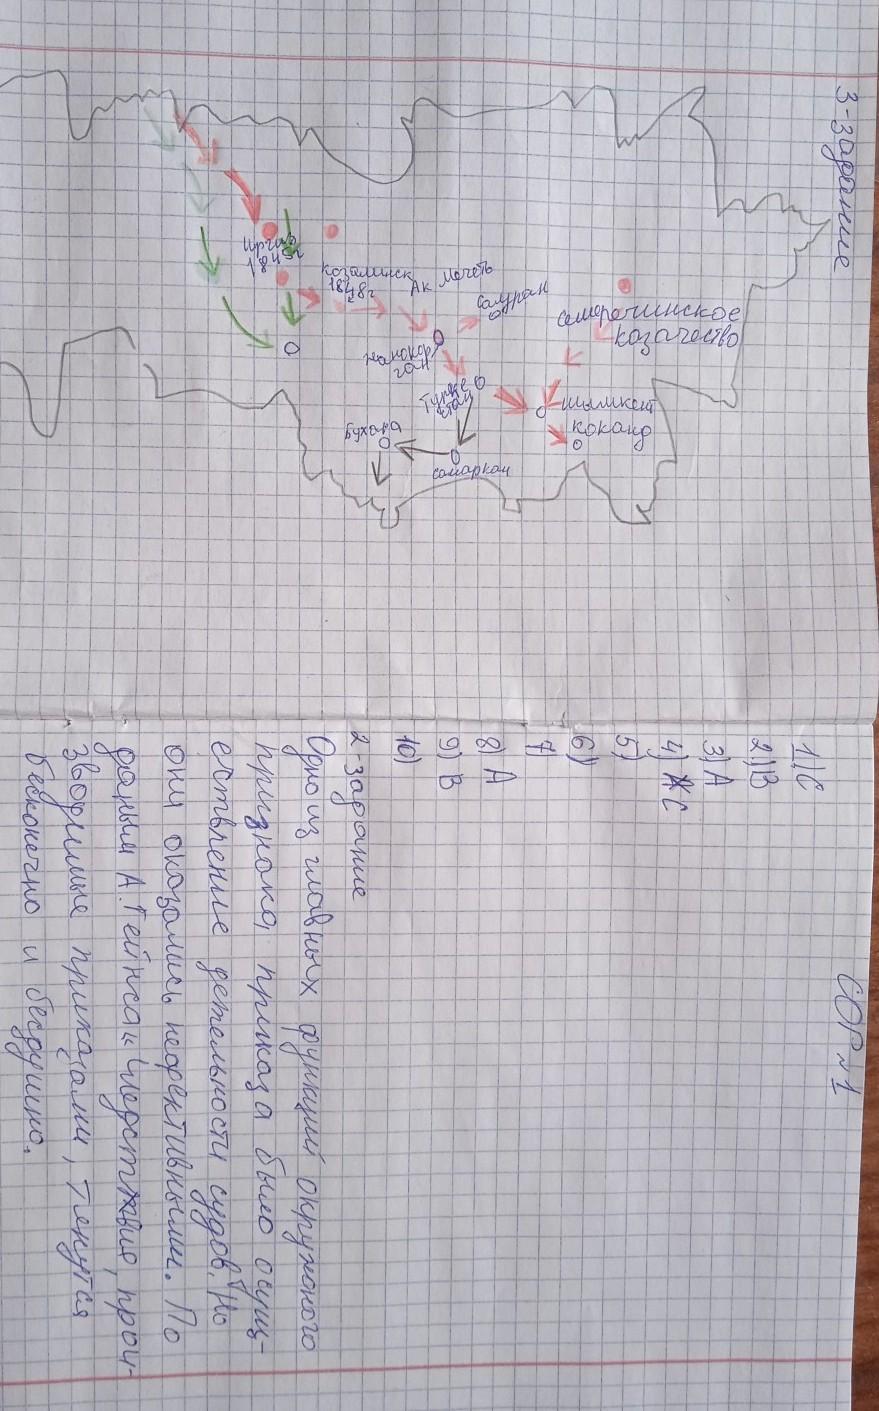 СОР №1
1) С
2) В
3) А
4) С
5)
6)
7
8) А
9) В
10)
2-задание
Одно из главных функций окружного
признака, приказа было осущ-
ествление детельности судов. Но
они оказались неэфективными. По
даным А.Гейнса «Следствие, прои-
зводимые приказами, тянутся
бесконечно и бездушно.
3-задание
Иргиз
1845г
Козалинск
1848г
Ак Мечеть
Сауран
Семереченское
козачество
Жанакор
ган
Турке
стан
Шымкент
Коканд
Бухара
Самаркан